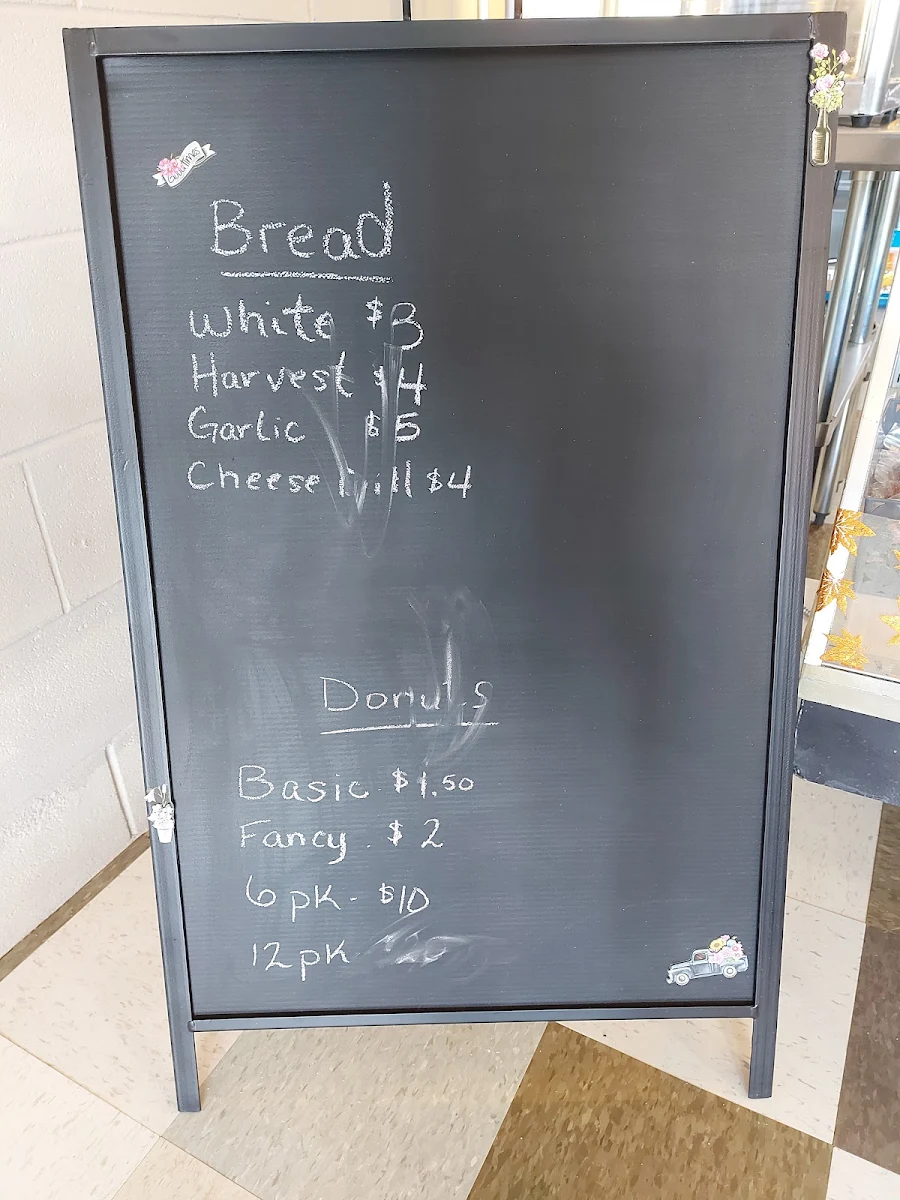 Good Times
Bread
White $3
Harvest $4
Garlic $5
Cheese Dill $4
Donuts
Basic $1.50
Fancy. $2
6 pk - $10
12 pk